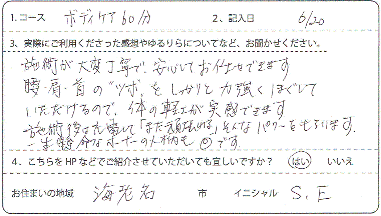 1. コース ボディケア60分 2、記入日 6/20
3、実際にご利用くださった感想やゆるりらについてなど、お聞かせください。
施術が大変丁寧で、安心してお任せできます
腰・肩・首の"ツボ"をしっかりと力強くほぐして
いただけるので、体の軽さが実感できます
施術後は元気で「まだ頑張れる」そんなパワーをもらいます。
一生懸命なオーナーの人柄も◎です。
4. こちらをHPなどでご紹介させていただいても宜しいですか？ はい いいえ
お住まいの地域 海老名 市 イニシャル S. E